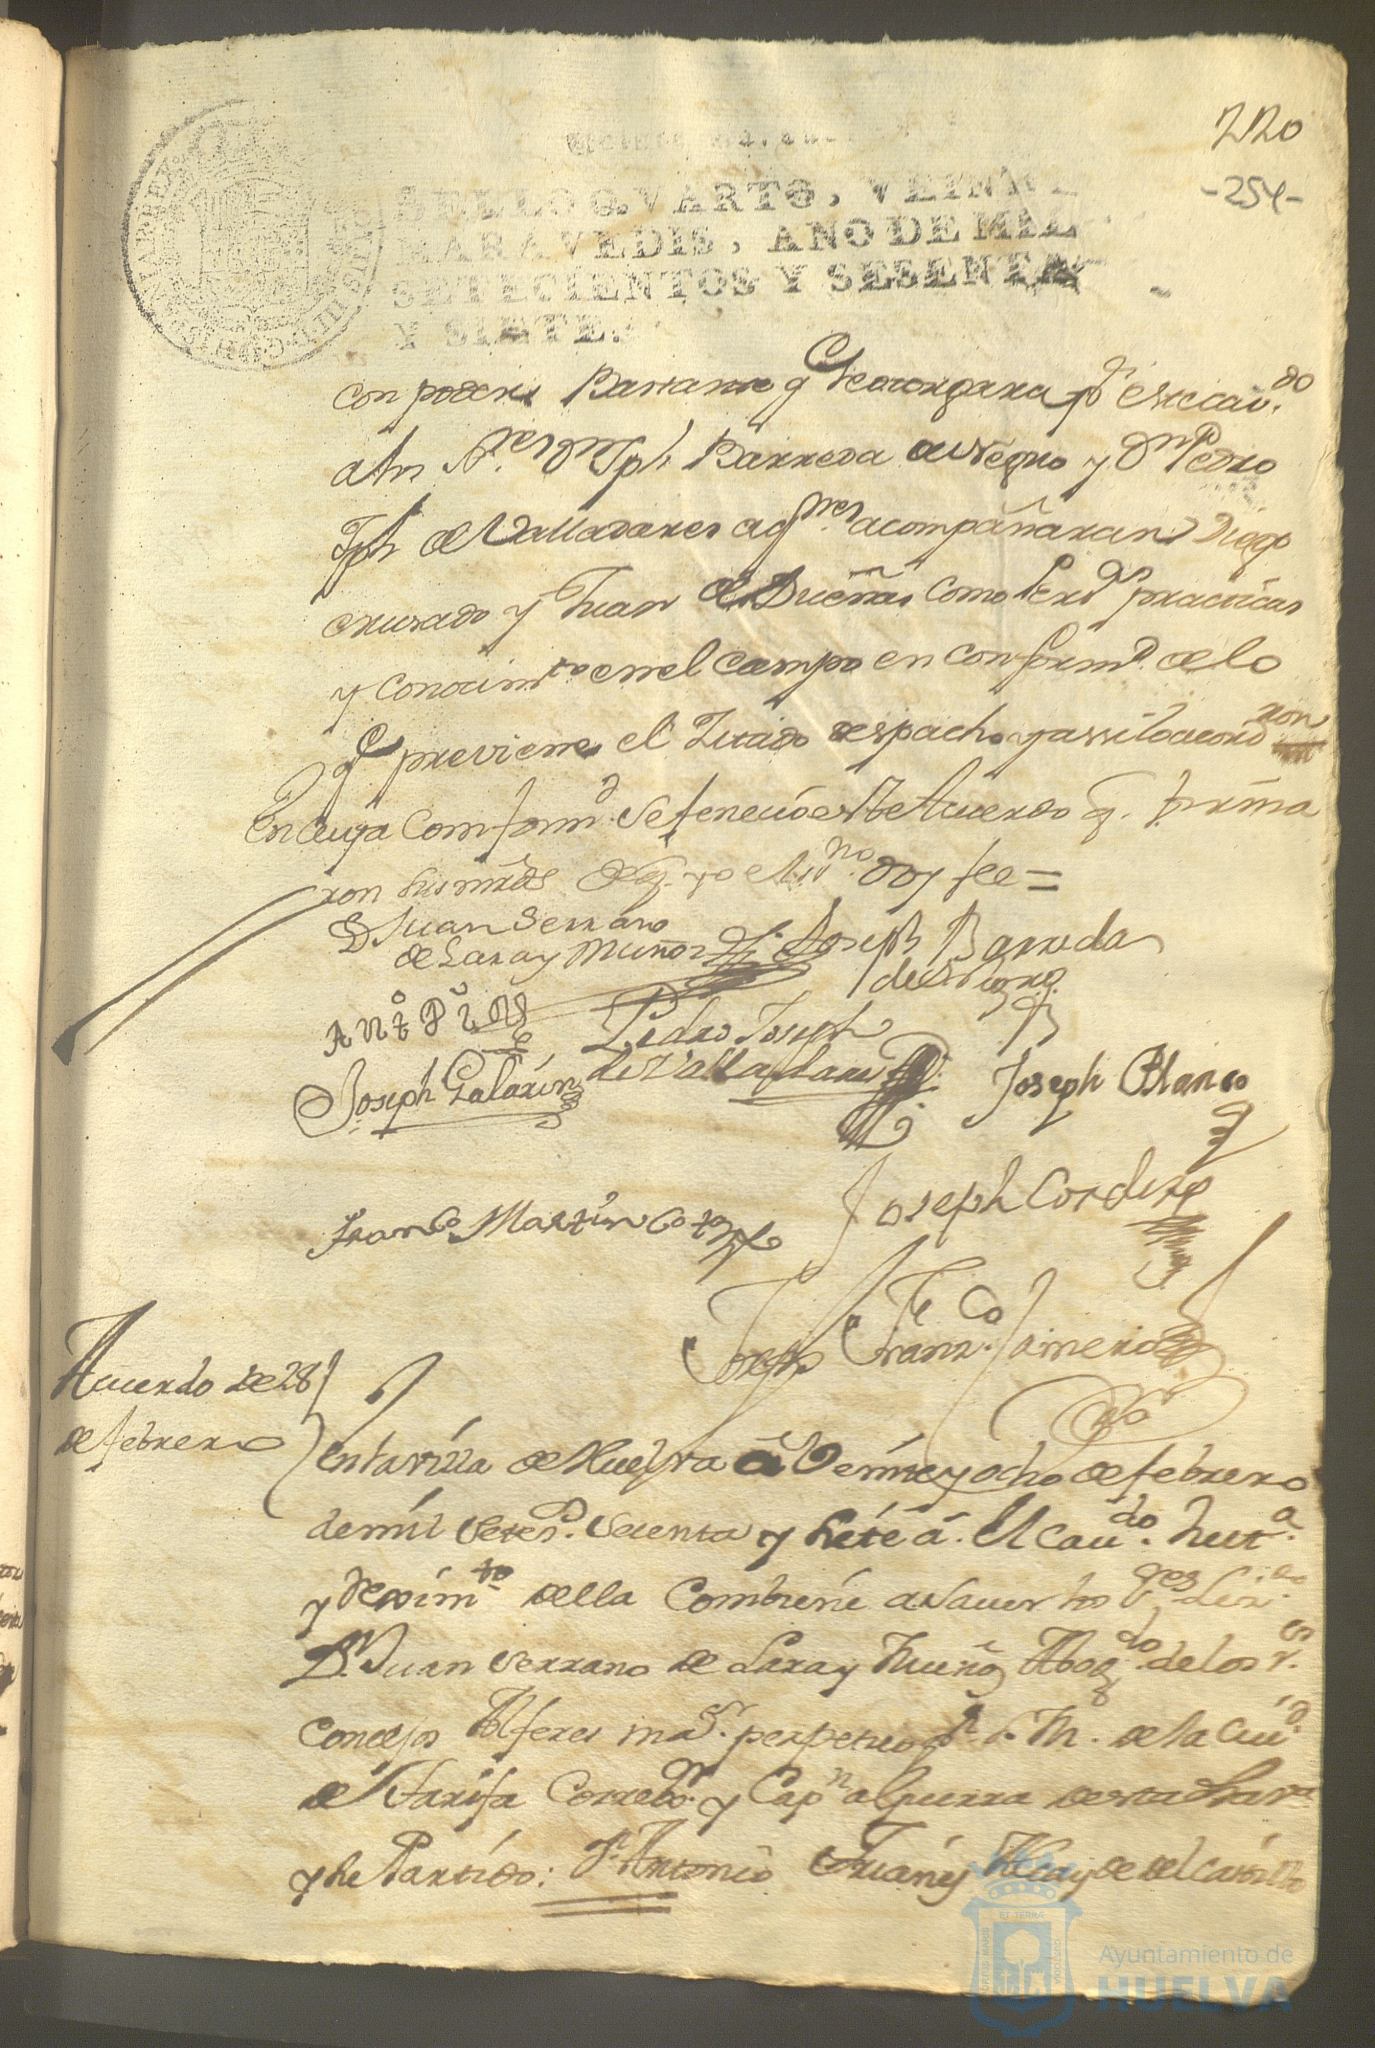 220
-254-
SELLO QVARTO, VEINTE
MARAVEDIS, AÑO DE MIL
SETECIENTOS Y SESENTA
Y SIETE.
con poder Bastante q Se otorgara pr este cavdo
a los Sres Dn Jph Barreda de y Dn Pedro
Jph de Valladares a qnes acompañaran Diego
cruzado y Juan de Dueñas como Pers practicas
y conocimto en el campo en conformd de lo
q previene el Zitado despacho y assi lo acord ron
En cuya Conformd Se feneció este Acuerdo q firma
ron sus mrds de q yo el no doy fee =
D Juan Serrano
de Lara y Muñoz Joseph Barreda
Antº
Pedro Joseph
de Valladares Joseph Blanco
Joseph Galarin
Joseph Cordero
Franco Martin
Joseph Franco Jimenez
Acuerdo de 28
de febrero
en la villa de Huelva á Veinte y ocho de febrero
de mil Setets. Sesenta y Siete as. El Cavdo. Justa
y Reximto della Combiene a saver los Sres Licdo
Dn Juan Serrano de Lara y Muñoz Abogdo de los Rs
Concejos Alferes maor perpetuo pr S. M. de la Ciud
de Tarifa Corregor y Capn a Guerra desta
y su Partido: Dn Antonio Alcayde del castillo
Ayuntamiento de
HUELVA